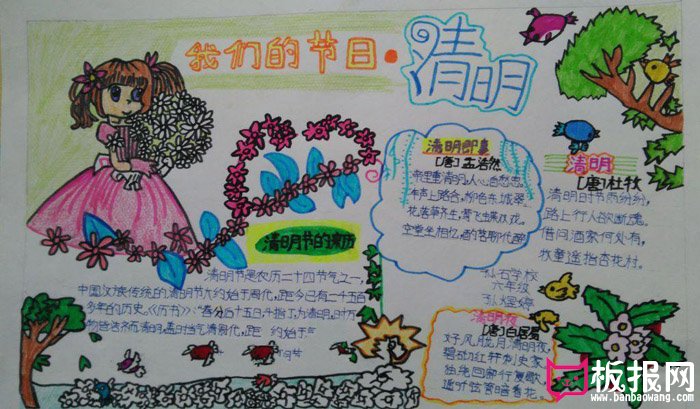 我们的节日·清明
清明即事
[唐]孟浩然
帝里重清明,人心自愁思。
车声上路合,柳色东城翠。
花落草齐生,莺飞蝶双戏。
空堂坐相忆,酌茗聊代醉
清明
[唐]杜牧
清明时节雨纷纷,
路上行人欲断魂。
借问酒家何处有,
牧童遥指杏花村。
清明节的来历
清明节是农历二十四节气之一,
中国汉族传统的清明节大约始于周代,距今已有二千五百
多年的历史。《历书》:"春分后十五日,斗指丁,为清明,时万
物皆洁齐而清明,盖时当气清
学校
六年级
清明夜
[唐]白居易
好风胧月清明夜,
碧砌红轩刺史家
独绕回廊行复歇,
遥听弦管暗看花。
板报网
www.banbaowang.com